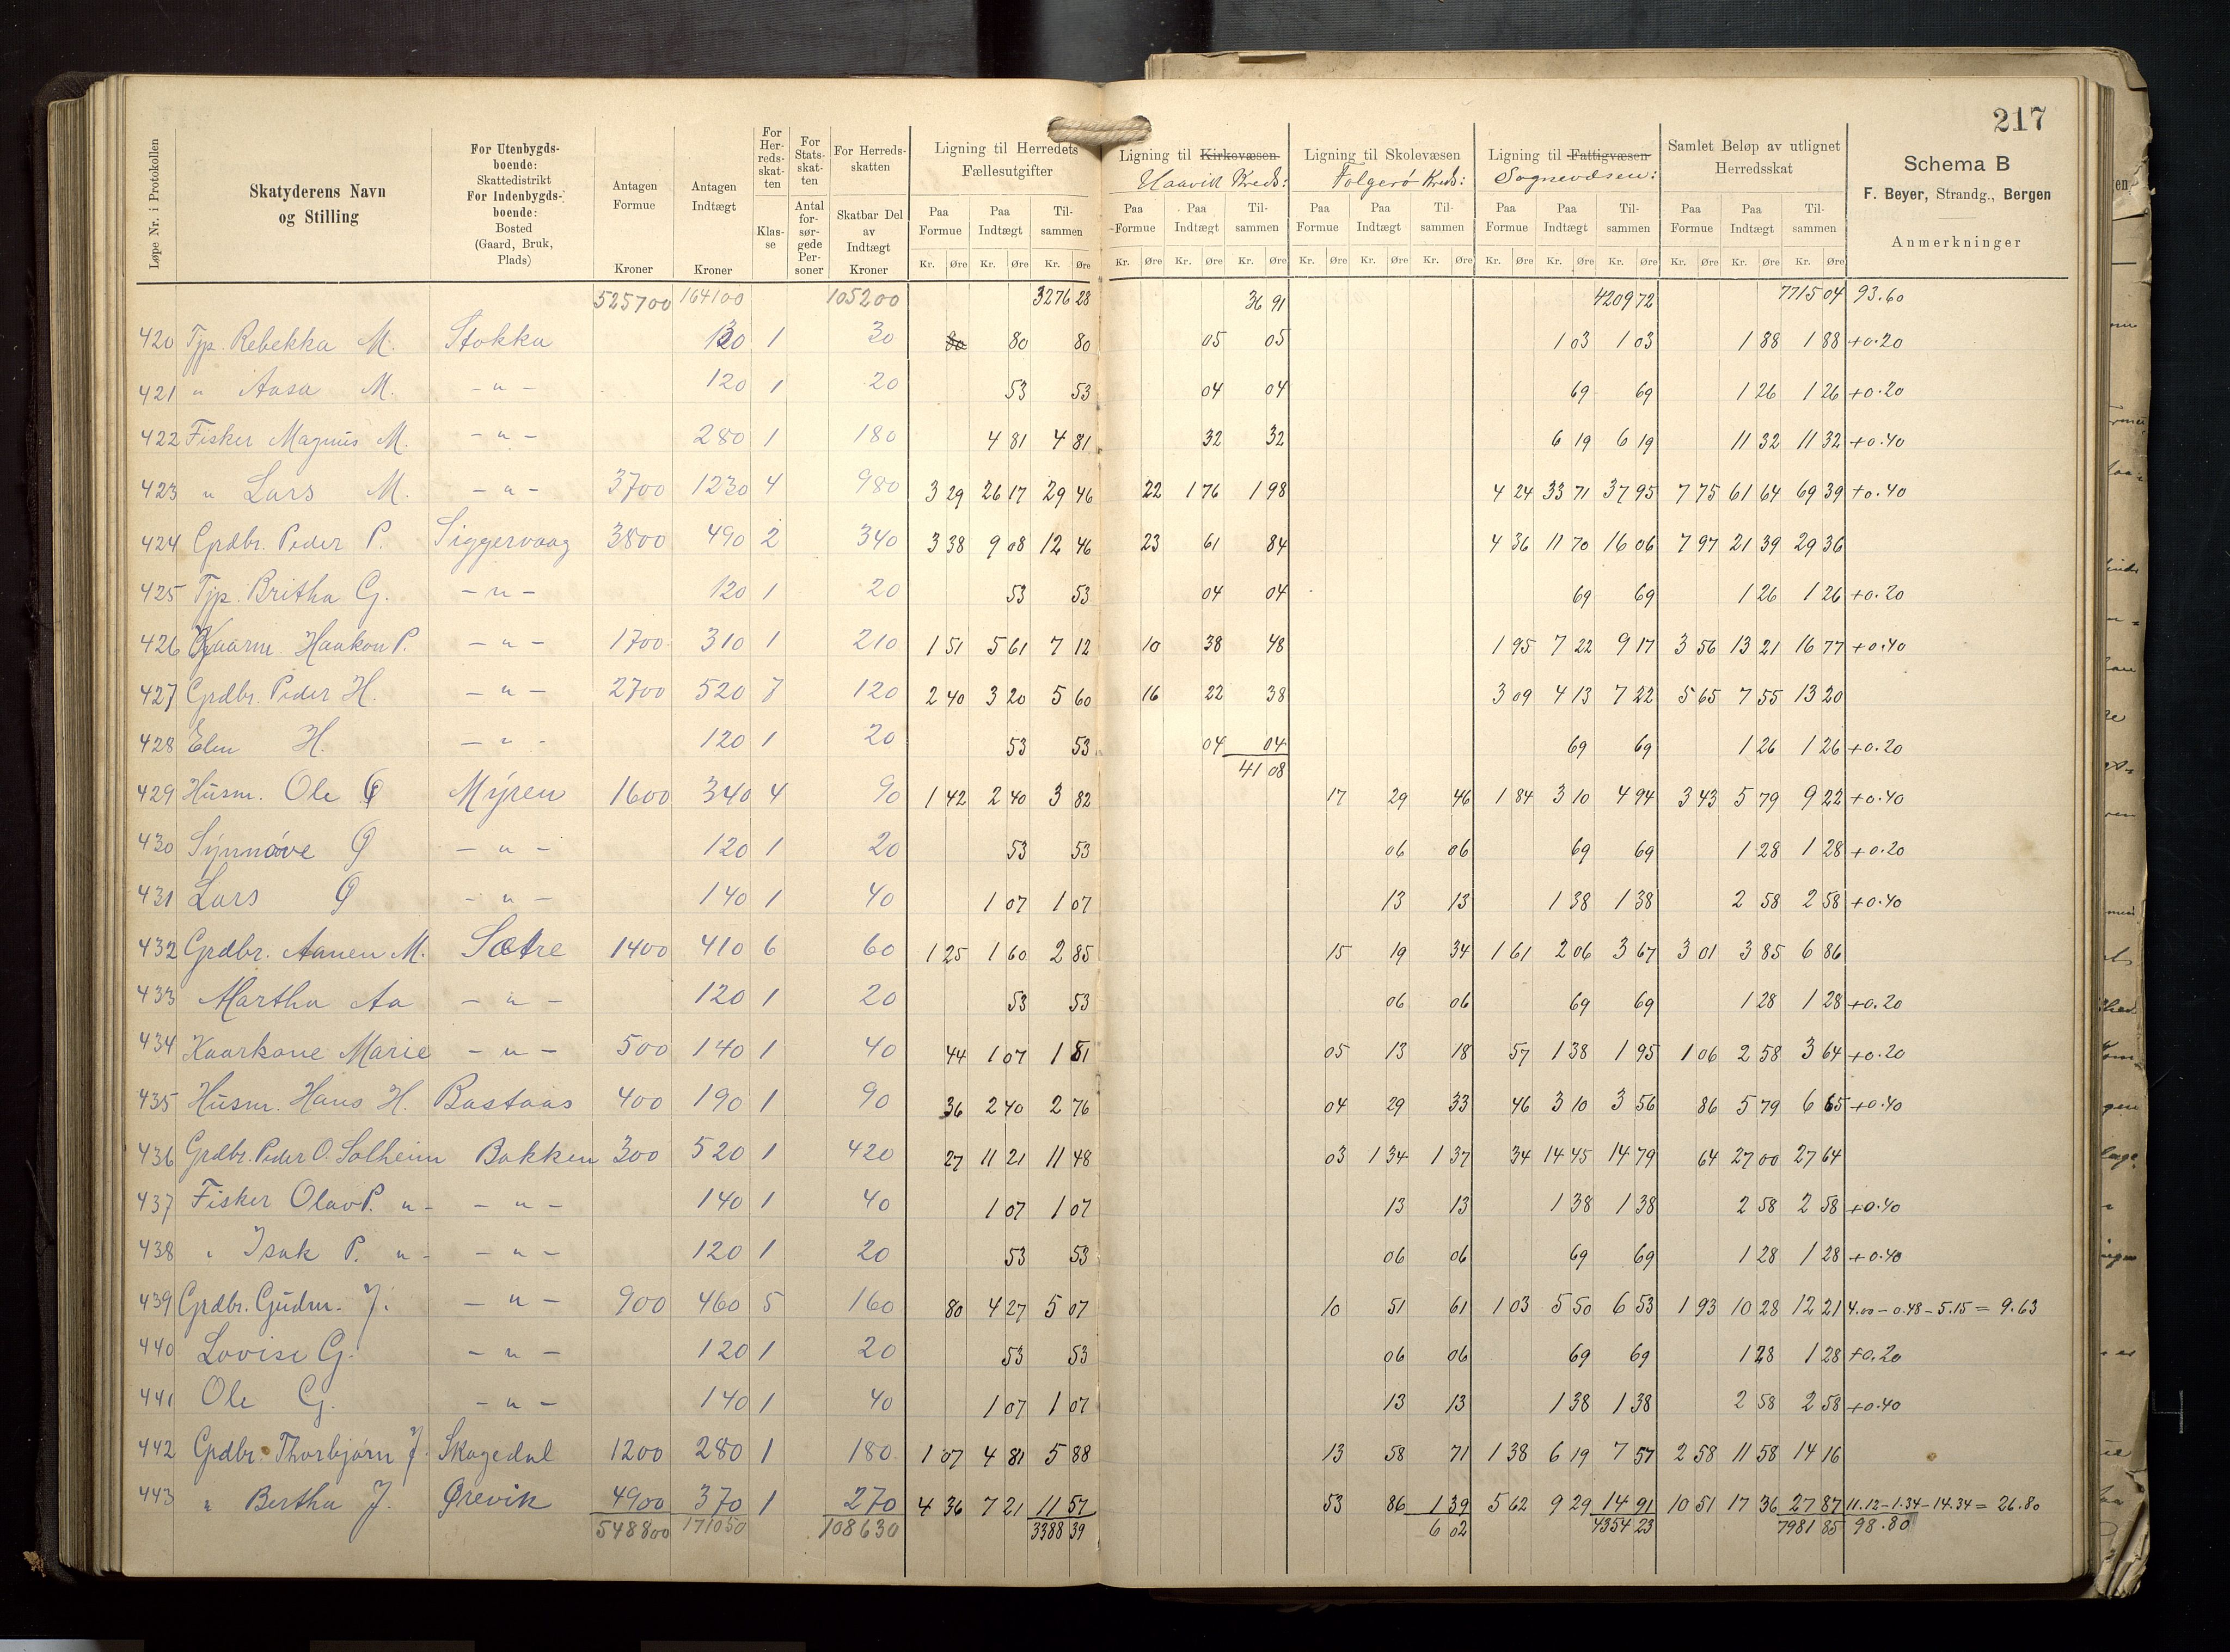 217
Løpe Nr. i Protokollen | Skatyderens Navn og Stilling | For Utenbygds-boende: Skattedistrikt For Indenbygds-boende: Bosted (Gaard, Bruk, Plads) | Antagen Formue Kroner | Antagen Indtægt Kroner | For Her-reds-skat-ten Klas-se | For Stats-skat-ten Antal for-sør-gede Per-soner | For Herreds-skatten Skatbar Del av Indtægt Kroner | Ligning til Herredets Fællesutgifter | Ligning til Kirkevæsen Haavik Kreds: | Ligning til Skolevæsen Folgerø Kreds: | Ligning til Fattigvæsen Sognevæsen: | Samlet Beløp av utlignet Herredsskat | Schema B F. Beyer, Strandg., Bergen Anmerkninger
Paa Formue | Paa Indtægt | Til-sammen | Paa Formue | Paa Indtægt | Til-sammen | Paa Formue | Paa Indtægt | Til-sammen | Paa Formue | Paa Indtægt | Til-sammen | Paa Formue | Paa Indtægt | Til-sammen
Kr. Øre Kr. Øre Kr. Øre Kr. Øre Kr. Øre Kr. Øre Kr. Øre Kr. Øre Kr. Øre Kr. Øre Kr. Øre Kr. Øre Kr. Øre Kr. Øre Kr. Øre
525700 164100 105200 3276 28 36 91 4209 72 7715 04 93.60
420 Tjp. Rebekka M. Stokka 130 1 30 80 80 80 05 05 1 03 1 03 1 88 1 88 +0.20
421 " Aasa M. - " - 120 1 20 53 53 04 04 69 69 1 26 1 26 +0.20
422 Fisker Magnus M. - " - 280 1 180 4 81 4 81 32 32 6 19 6 19 11 32 11 32 +0.40
423 " Lars M. - " - 3700 1230 4 980 3 29 26 17 29 46 22 1 76 1 98 4 24 33 71 37 95 7 75 61 64 69 39 +0.40
424 Grdbr. Peder P. Siggervaag 3800 490 2 340 3 38 9 08 12 46 23 61 84 4 36 11 70 16 06 7 97 21 39 29 36
425 Tjp. Britha G. - " - 120 1 20 53 53 04 04 69 69 1 26 1 26 +0.20
426 Kaarm. Haakon P. - " - 1700 310 1 210 1 51 5 61 7 12 10 38 48 1 95 7 22 9 17 3 56 13 21 16 77 +0.40
427 Grdbr. Peder H. - " - 2700 520 7 120 2 40 3 20 5 60 16 22 38 3 09 4 13 7 22 5 65 7 55 13 20
428 Elen H. - " - 120 1 20 53 53 04 04 69 69 1 26 1 26 +0.20
41 08
429 Husm. Ole Ø Mÿren 1600 340 4 90 1 42 2 40 3 82 17 29 46 1 84 3 10 4 94 3 43 5 79 9 22 +0.40
430 Synnøve Ø - " - 120 1 20 53 53 06 06 69 69 1 28 1 28 +0.20
431 Lars Ø - " - 140 1 40 1 07 1 07 13 13 1 38 1 38 2 58 2 58 +0.40
432 Grdbr. Aanen M. Sætre 1400 410 6 60 1 25 1 60 2 85 15 19 34 1 61 2 06 3 67 3 01 3 85 6 86
433 Martha Aa - " - 120 1 20 53 53 06 06 69 69 1 28 1 28 +0.20
434 Kaarkone Marie - " - 500 140 1 40 44 1 07 1 51 05 13 18 57 1 38 1 95 1 06 2 58 3 64 +0.20
435 Husm. Hans H. Bastaas 400 190 1 90 36 2 40 2 76 04 29 33 46 3 10 3 56 86 5 79 6 65 +0.40
436 Grdbr. Peder O. Solheim Bakken 300 520 1 420 27 11 21 11 48 03 1 34 1 37 34 14 45 14 79 64 27 00 27 64
437 Fisker Olav P. " - - " - 140 1 40 1 07 1 07 13 13 1 38 1 38 2 58 2 58 +0.40
438 " Isak P. " - - " - 120 1 20 53 53 06 06 69 69 1 28 1 28 +0.40
439 Grdbr. Gudm. J. - " - 900 460 5 160 80 4 27 5 07 10 51 61 1 03 5 50 6 53 1 93 10 28 12 21 4.00 - 0.48 - 5.15 = 9.63
440 Lovise G. - " - 120 1 20 53 53 06 06 69 69 1 28 1 28 +0.20
441 Ole G. - " - 140 1 40 1 07 1 07 13 13 1 38 1 38 2 58 2 58 +0.40
442 Grdbr. Thorbjørn J. Skagedal 1200 280 1 180 1 07 4 81 5 88 13 58 71 1 38 6 19 7 57 2 58 11 58 14 16
443 " Bertha J. Ørevik 4900 370 1 270 4 36 7 21 11 57 53 86 1 39 5 62 9 29 14 91 10 51 17 36 27 87 11.12 - 1.34 - 14.34 = 26.80
548800 171050 108630 3388 39 6 02 4354 23 7981 85 98.80